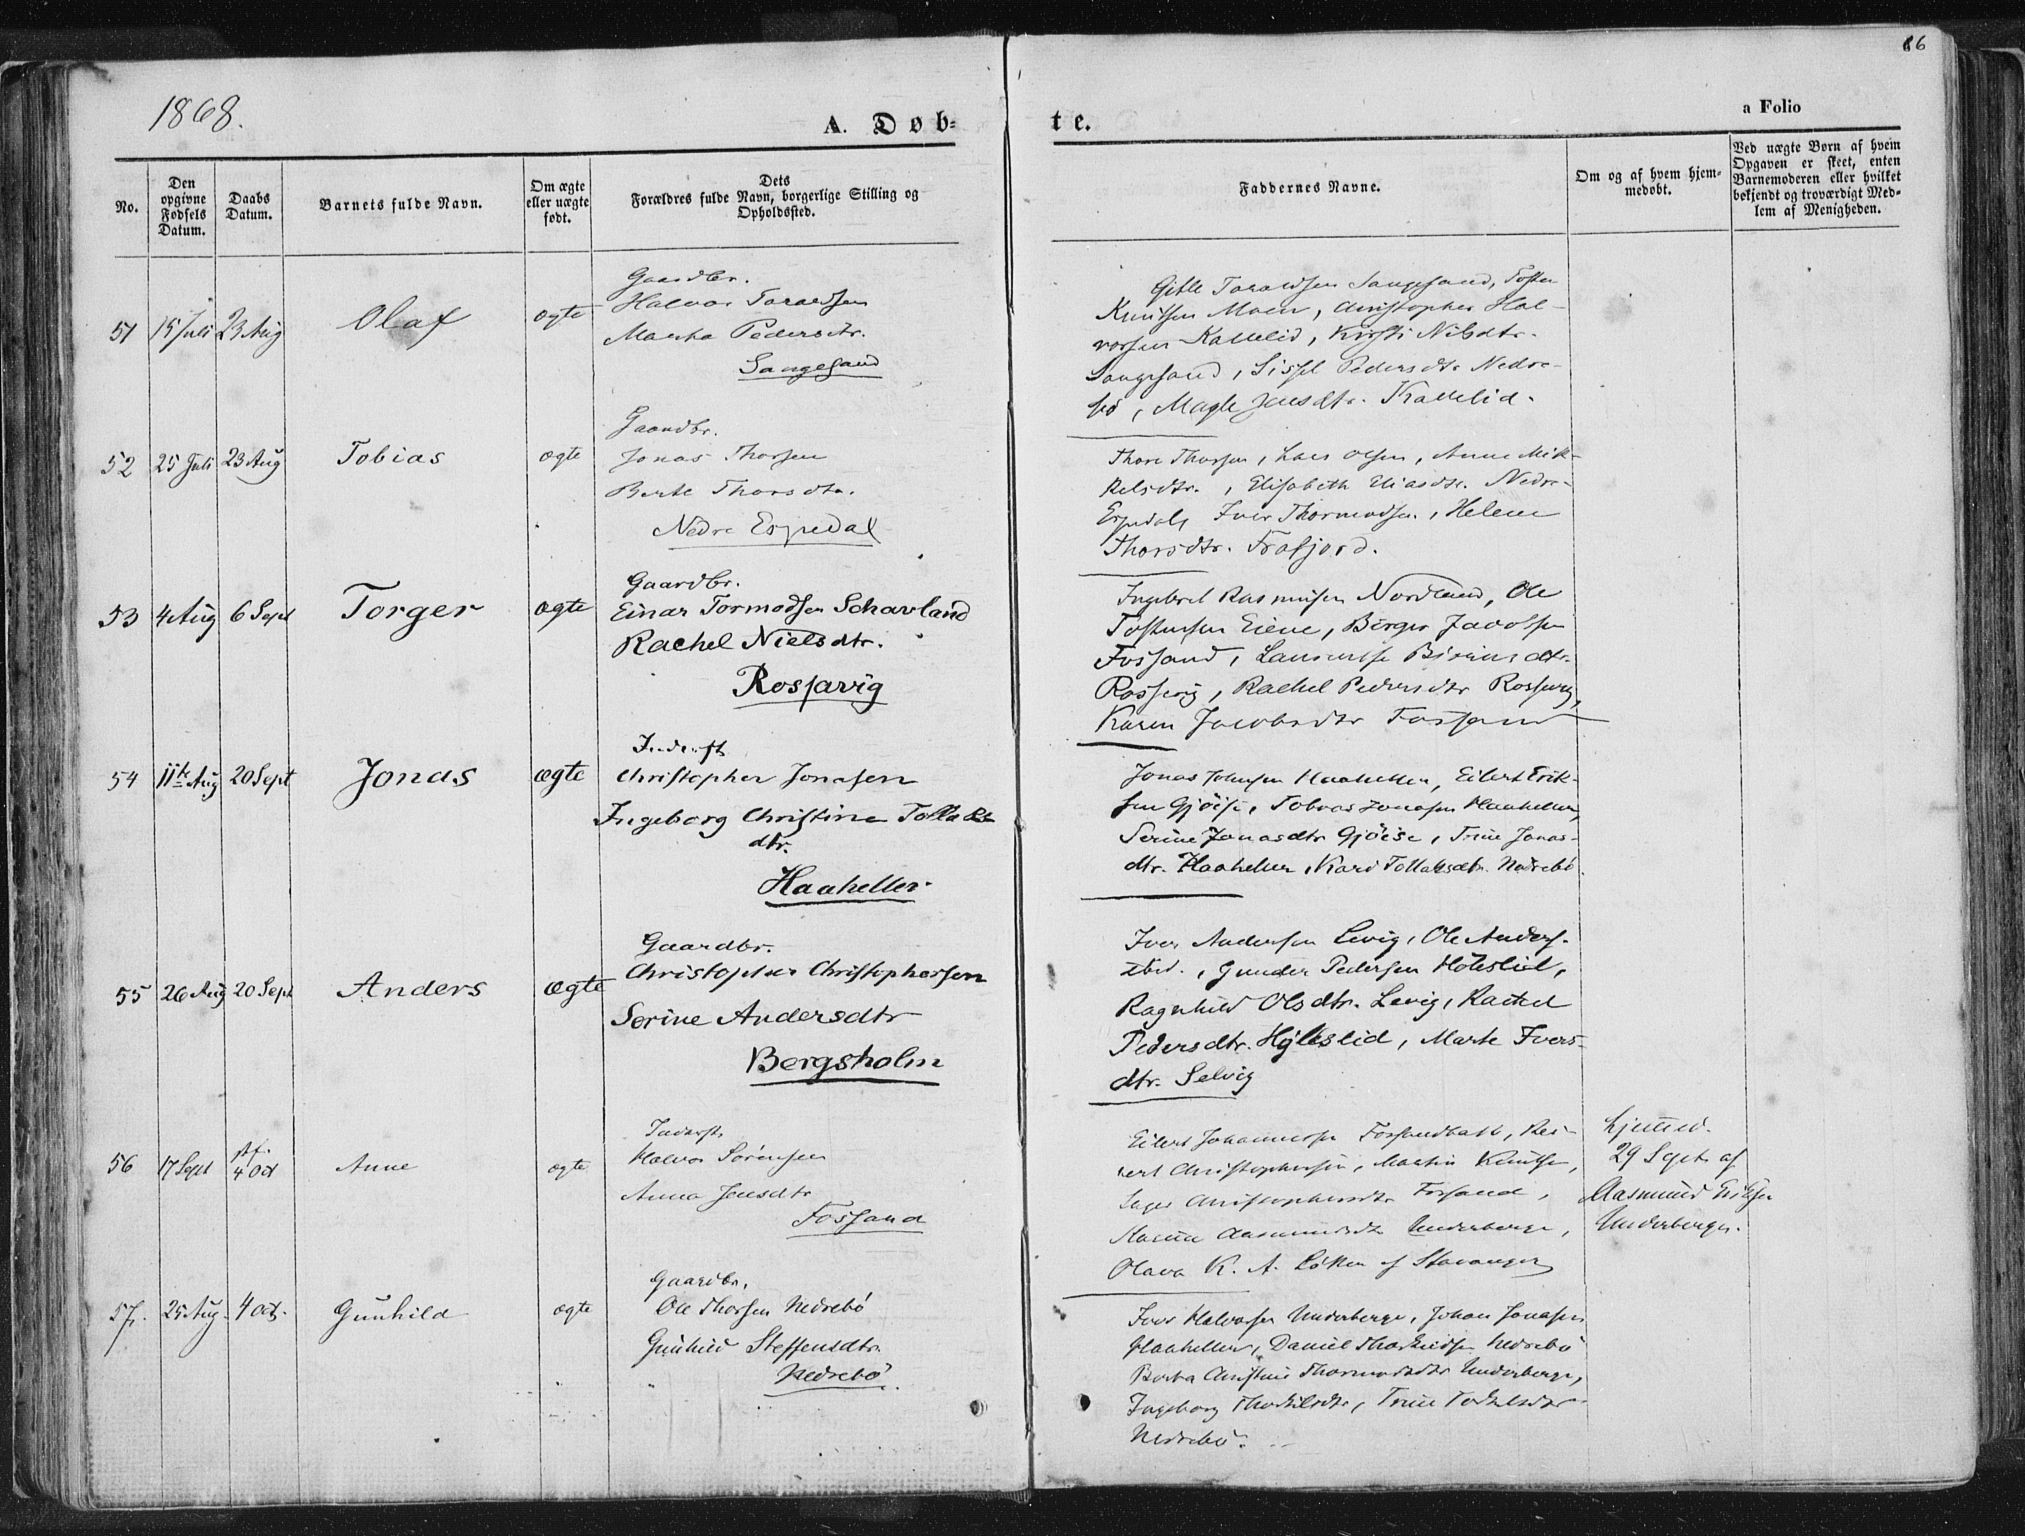 1868.
86
A. Døb-
te.
a Folio
No.
Den
opgivne
Fødsels
Datum.
Daabs
Datum.
Barnets fulde Navn.
Om ægte
eller uægte
født.
Dets
Forældres fulde Navn, borgerlige Stilling og
Opholdssted.
Faddernes Navne.
Om og af hvem hjem-
medøbt.
Ved uægte Børn af hvem
Opgaven er skeet, enten
Barnemoderen eller hvilket
bekjendt og troværdigt Med-
lem af Menigheden.
51 15 Juli 23 Aug Olaf ægte
Gaardbr.
Halvor Taraldsen
Martha Pedersdtr.
Sangesand
Gitle Taraldsen Sangesand, Tosten
Knutsen Moen, Christopher Hal-
vorsen Kallelid, Kirsti Nilsdtr.
Sangesand, Sissel Pedersdtr Nedre-
bø, Jensdtr. Kallelid.
52 25 Juli 23 Aug Tobias ægte
Gaardbr.
Jonas Thorsen
Berte Thorsdtr.
Nedre Espedal
Thore Thorsen, Lars Olsen, Anne Mik-
kelsdtr., Elisabeth Eliasdtr. Nedre-
Espedal, Iver Thormodsen, Helene
Thorsdtr. Frafjord.
53 4 Aug 6 Sept Torger ægte
Gaardbr.
Einar Tormodsen Schavland
Rachel Nielsdtr.
Rossavig
Ingebret Rasmusen Nordland, Ole
Tostensen Eiene, Birger Jacobsen
Fossand, dtr.
Rossavig, Rachel Pedersdtr Rossavig,
Karen Jacobsdtr Fossand
54 11te Aug 20 Sept Jonas ægte
Inderst
Christopher Jonasen
Ingeborg Christine Tollaks
dtr.
Haaheller
Jonas Johnsen Haaheller, Eilert Erik-
sen Gjøise, Tobias Jonasen Haaheller,
Serine Jonasdtr Gjøise, Trine Jonas-
dtr. Haaheller, Kari Tollaksdtr. Nedrebø.
55 26 Aug 20 Sept Anders ægte
Gaardbr.
Christopher Christophersen
Serine Andersdtr
Bergsholm
Iver Andersen Levig, Ole Anders.
ibid., Gunder Pedersen Høleslid,
Ragnhild Olsdtr. Levig, Rachel
Pedersdtr. Høleslid, Marte Ivers-
dtr. Selvig
56 17 Sept 4 Oct Anne ægte
Inderst
Halvor Sørensen
Anna Jensdtr
Fossand
Eilert Johannesen Fossandbakk, Rei-
nert Christophersen, Martin Knutsen,
Inger Christophersdtr Fossand,
Aasmundsdtr Underberge,
Olava K. A. Løkken af Stavanger
hjemmed.
29 Sept. af
Aasmund Eriksen
Underberge.
57. 25 Aug. 4 Oct. Gunhild ægte
Gaardbr.
Ole Thorsen Nedrebø
Gunhild Steffensdtr.
Nedrebø.
Iver Halvorsen Underberge, Johan Jonasen
Haaheller, Daniel Thorkildsen Nedrebø
Berta Christine Thormodsdtr Underberge,
Ingeborg Thorkilsdtr, Trine Torkelsdtr
Nedrebø.